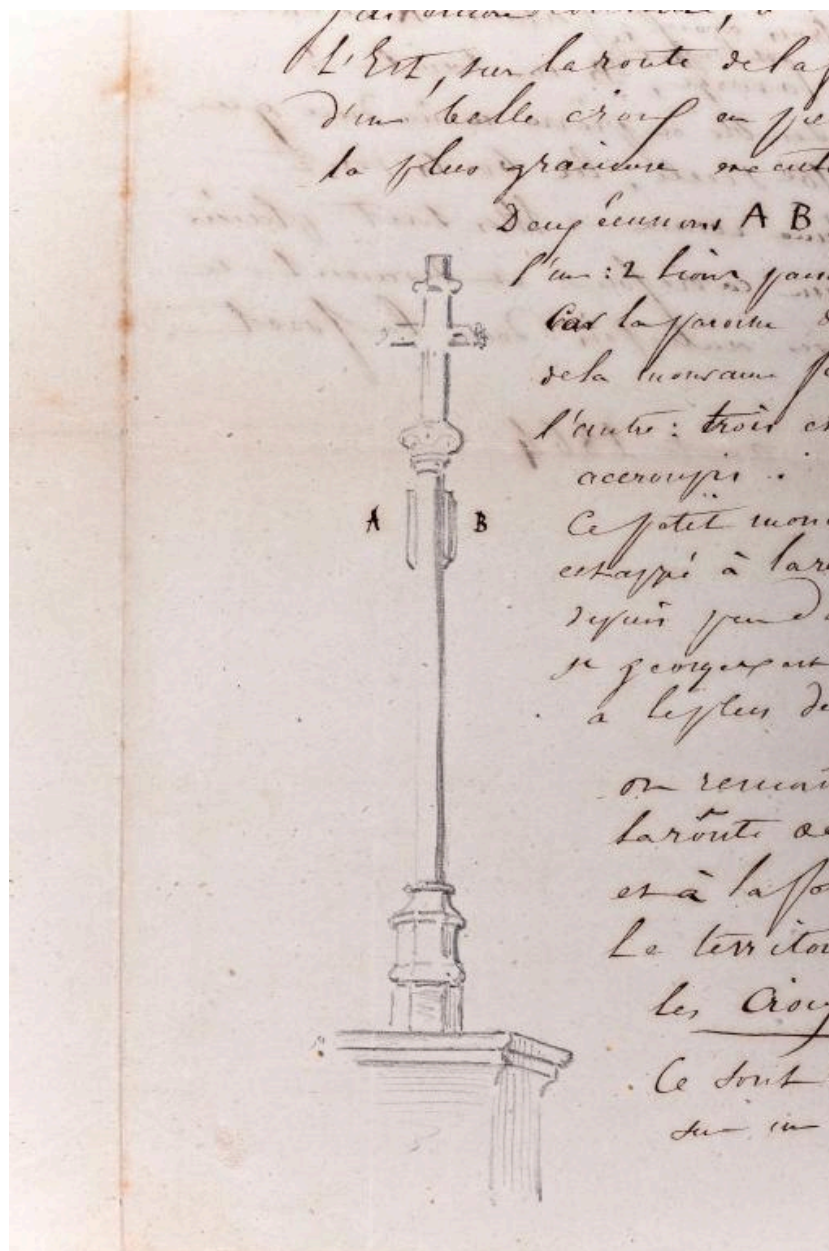 L'Est, sur la route de la
d'une belle croix en pie
la plus gracieuse exécut
Deux écussons A B
l'un : 2 lions pass
Car la paroisse d
de la nouveau
l'autre : trois
accroupis :
A B
Ce petit mon
échappé à la
depuis peu d
st georges est
a le plus de
on rencont
la route de
et à la
Le territoi
les Croix
Ce sont
sur un